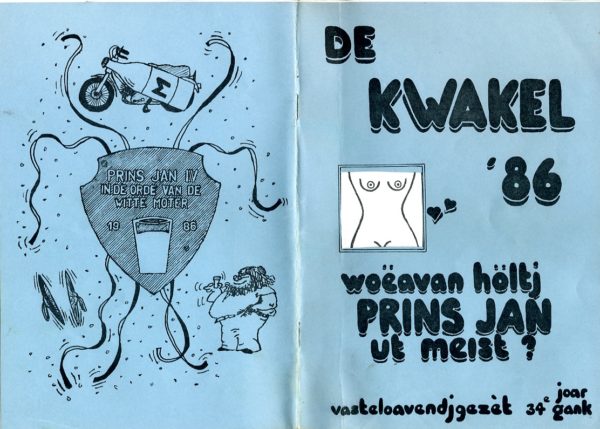 M
PRINS JAN IV
IN DE ORDE VAN DE
WITTE MOTER
19 86
DE
KWAKEL
'86
woëavan höltj
PRINS JAN
ut meist ?
vasteloavendjgezèt 34e joargank